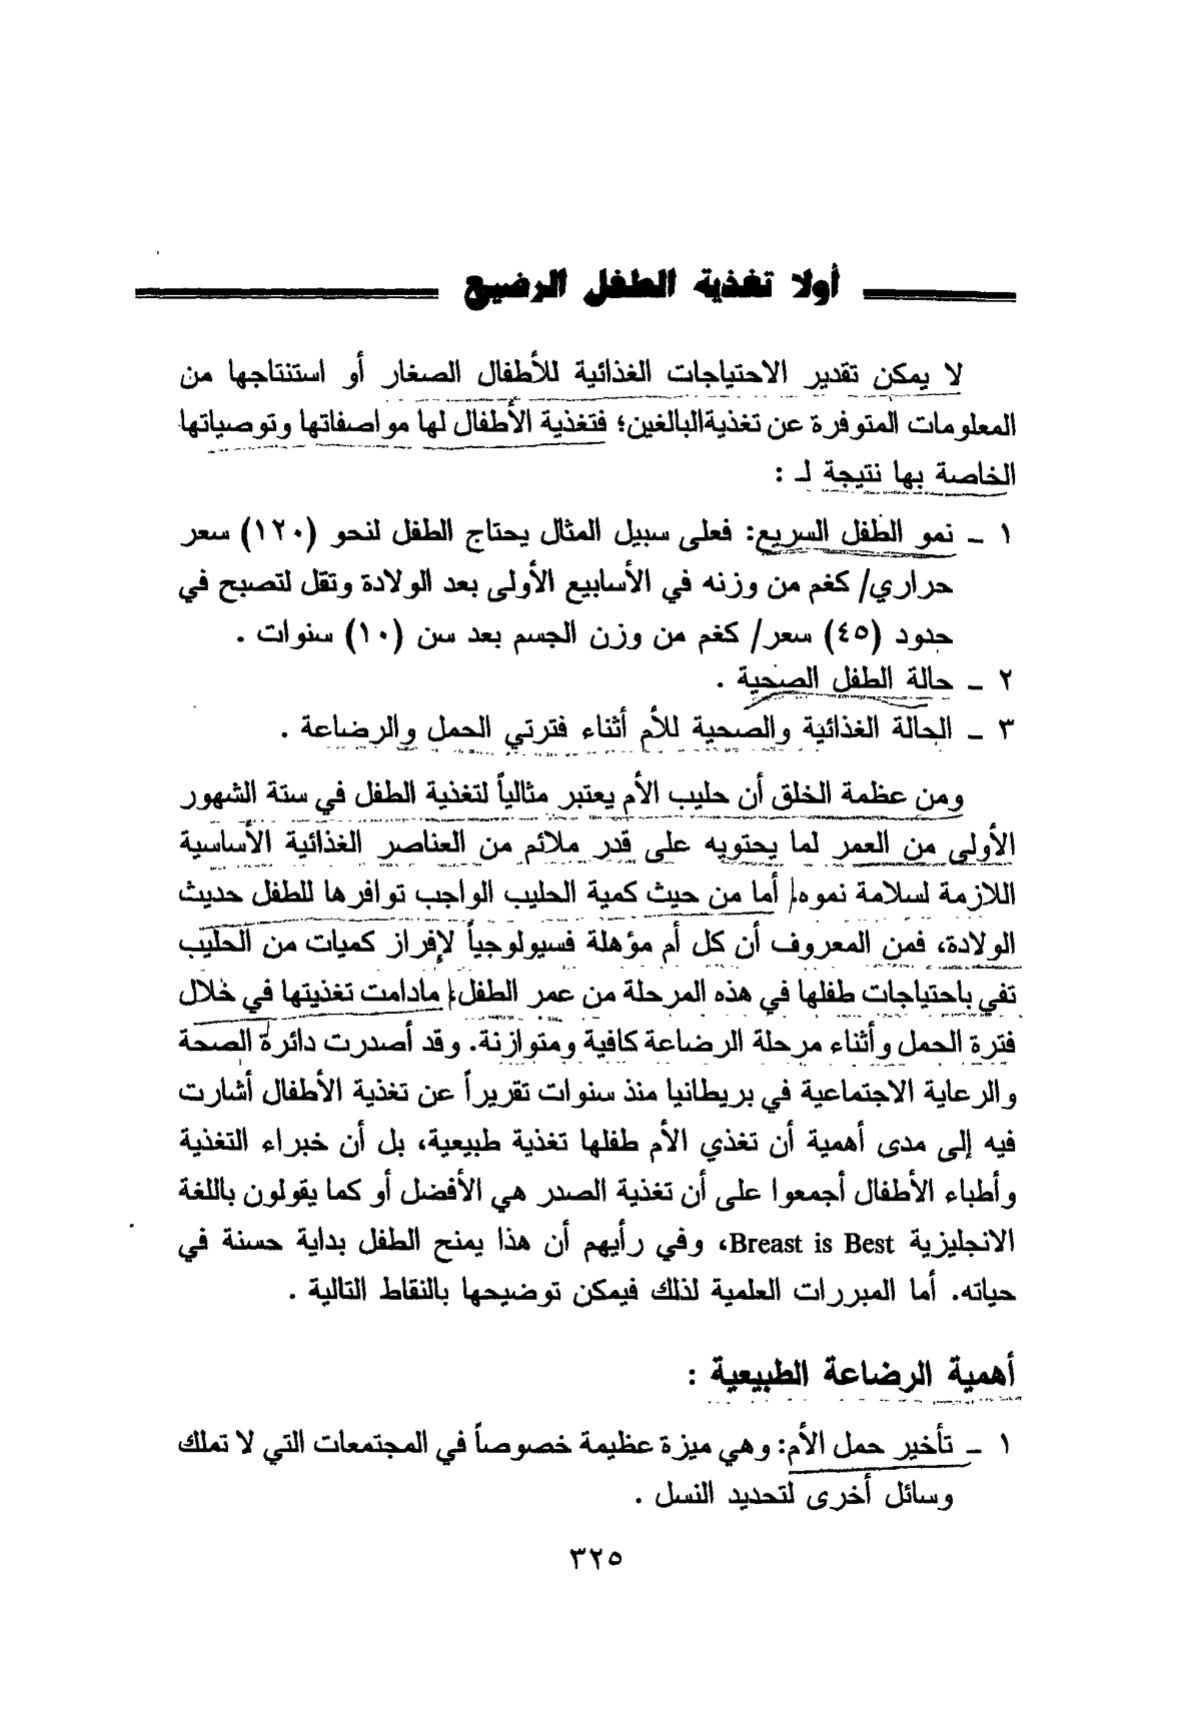 أولا تغذية الطفل الرضيع
لا يمكن تقدير الاحتياجات الغذائية للأطفال الصغار أو استنتاجها من
المعلومات المتوفرة عن تغذيةالبالغين؛ فتغذية الأطفال لها مواصفاتها وتوصياتها
الخاصة بها نتيجة لـ :
١ ـ نمو الطفل السريع: فعلى سبيل المثال يحتاج الطفل لنحو (١٢٠) سعر
حراري/ كغم من وزنه في الأسابيع الأولى بعد الولادة وتقل لتصبح في
حدود (٤٥) سعر/ كغم من وزن الجسم بعد سن (١٠) سنوات .
٢ ـ حالة الطفل الصحية .
٣ ـ الحالة الغذائية والصحية للأم أثناء فترتي الحمل والرضاعة .
ومن عظمة الخلق أن حليب الأم يعتبر مثالياً لتغذية الطفل في ستة الشهور
الأولى من العمر لما يحتويه على قدر ملائم من العناصر الغذائية الأساسية
اللازمة لسلامة نموه. أما من حيث كمية الحليب الواجب توافرها للطفل حديث
الولادة، فمن المعروف أن كل أم مؤهلة فسيولوجياً لإفراز كميات من الحليب
تفي باحتياجات طفلها في هذه المرحلة من عمر الطفل، مادامت تغذيتها في خلال
فترة الحمل وأثناء مرحلة الرضاعة كافية ومتوازنة. وقد أصدرت دائرة الصحة
والرعاية الاجتماعية في بريطانيا منذ سنوات تقريراً عن تغذية الأطفال أشارت
فيه إلى مدى أهمية أن تغذي الأم طفلها تغذية طبيعية، بل أن خبراء التغذية
وأطباء الأطفال أجمعوا على أن تغذية الصدر هي الأفضل أو كما يقولون باللغة
الانجليزية Breast is Best، وفي رأيهم أن هذا يمنح الطفل بداية حسنة في
حياته. أما المبررات العلمية لذلك فيمكن توضيحها بالنقاط التالية .
أهمية الرضاعة الطبيعية :
١ ـ تأخير حمل الأم: وهي ميزة عظيمة خصوصاً في المجتمعات التي لا تملك
وسائل أخرى لتحديد النسل .
٣٢٥